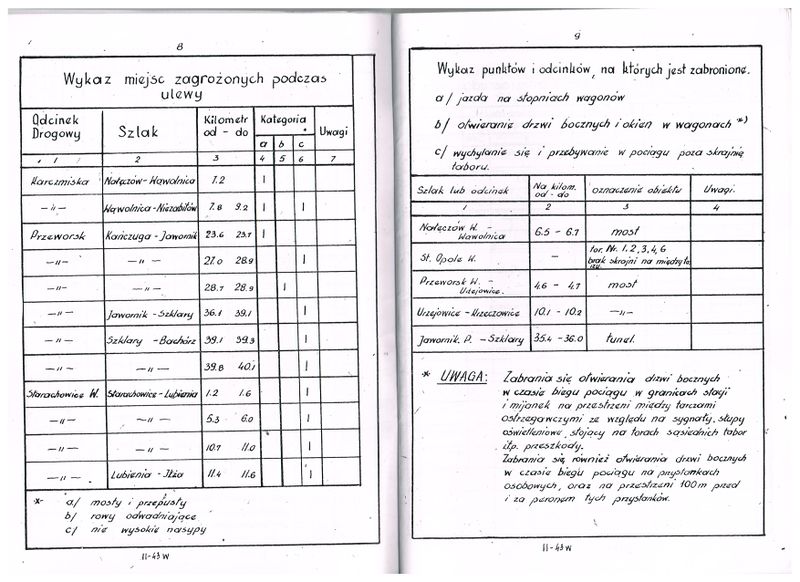 8
Wykaz miejsc zagrożonych podczas
ulewy
Odcinek Drogowy | Szlak | Kilometr od - do | Kategoria * | Uwagi
a | b | c
1 | 2 | 3 | 4 | 5 | 6 | 7
Karczmiska | Nałęczów-Wąwolnica | 7.2 | I
—"— | Wąwolnica-Niezabitów | 7.8 9.2 | I | | I
Przeworsk | Kańczuga-Jawornik | 23.6 23.7 | I
—"— | —"— | 27.0 28.9 | | | I
—"— | —"— | 28.7 28.9 | | I
—"— | Jawornik-Szklary | 36.1 39.1 | | | I
—"— | Szklary-Bachórz | 39.1 39.3 | | | I
—"— | —"— | 39.8 40.1 | | | I
Starachowice W. | Starachowice-Lubienia | 1.2 1.6 | | | I
—"— | —"— | 5.3 6.0 | | | I
—"— | —"— | 10.7 11.0 | | | I
—"— | Lubienia-Iłża | 11.4 11.6 | | | I
*- a/ mosty i przepusty
b/ rowy odwadniające
c/ nie wysokie nasypy
II-43 W
9
Wykaz punktów i odcinków, na których jest zabronione.
a/ jazda na stopniach wagonów
b/ otwieranie drzwi bocznych i okien w wagonach *)
c/ wychylanie się i przebywanie w pociągu poza skrajnię
taboru.
Szlak lub odcinek | Na kilom. od - do | oznaczenie obiektu | Uwagi.
1 | 2 | 3 | 4
Nałęczów W. - Wąwolnica | 6.5 - 6.7 | most
St. Opole W. | — | tor. Nr. 1, 2, 3, 4, 6 brak skrajni na
Przeworsk W. - Urzejowice. | 4.6 - 4.7 | most
Urzejowice - Krzeczowice | 10.1 - 10.2 | —"—
Jawornik. P. - Szklary | 35.4 - 36.0 | tunel.
* UWAGA: Zabrania się otwierania drzwi bocznych
w czasie biegu pociągu w granicach stacji
i mijanek na przestrzeni między tarczami
ostrzegawczymi ze względu na sygnały, słupy
oświetleniowe, stojący na torach sąsiednich tabor
itp. przeszkody.
Zabrania się również otwierania drzwi bocznych
w czasie biegu pociągu na przystankach
osobowych, oraz na przestrzeni 100 m przed
i za peronem tych przystanków.
II-43 W